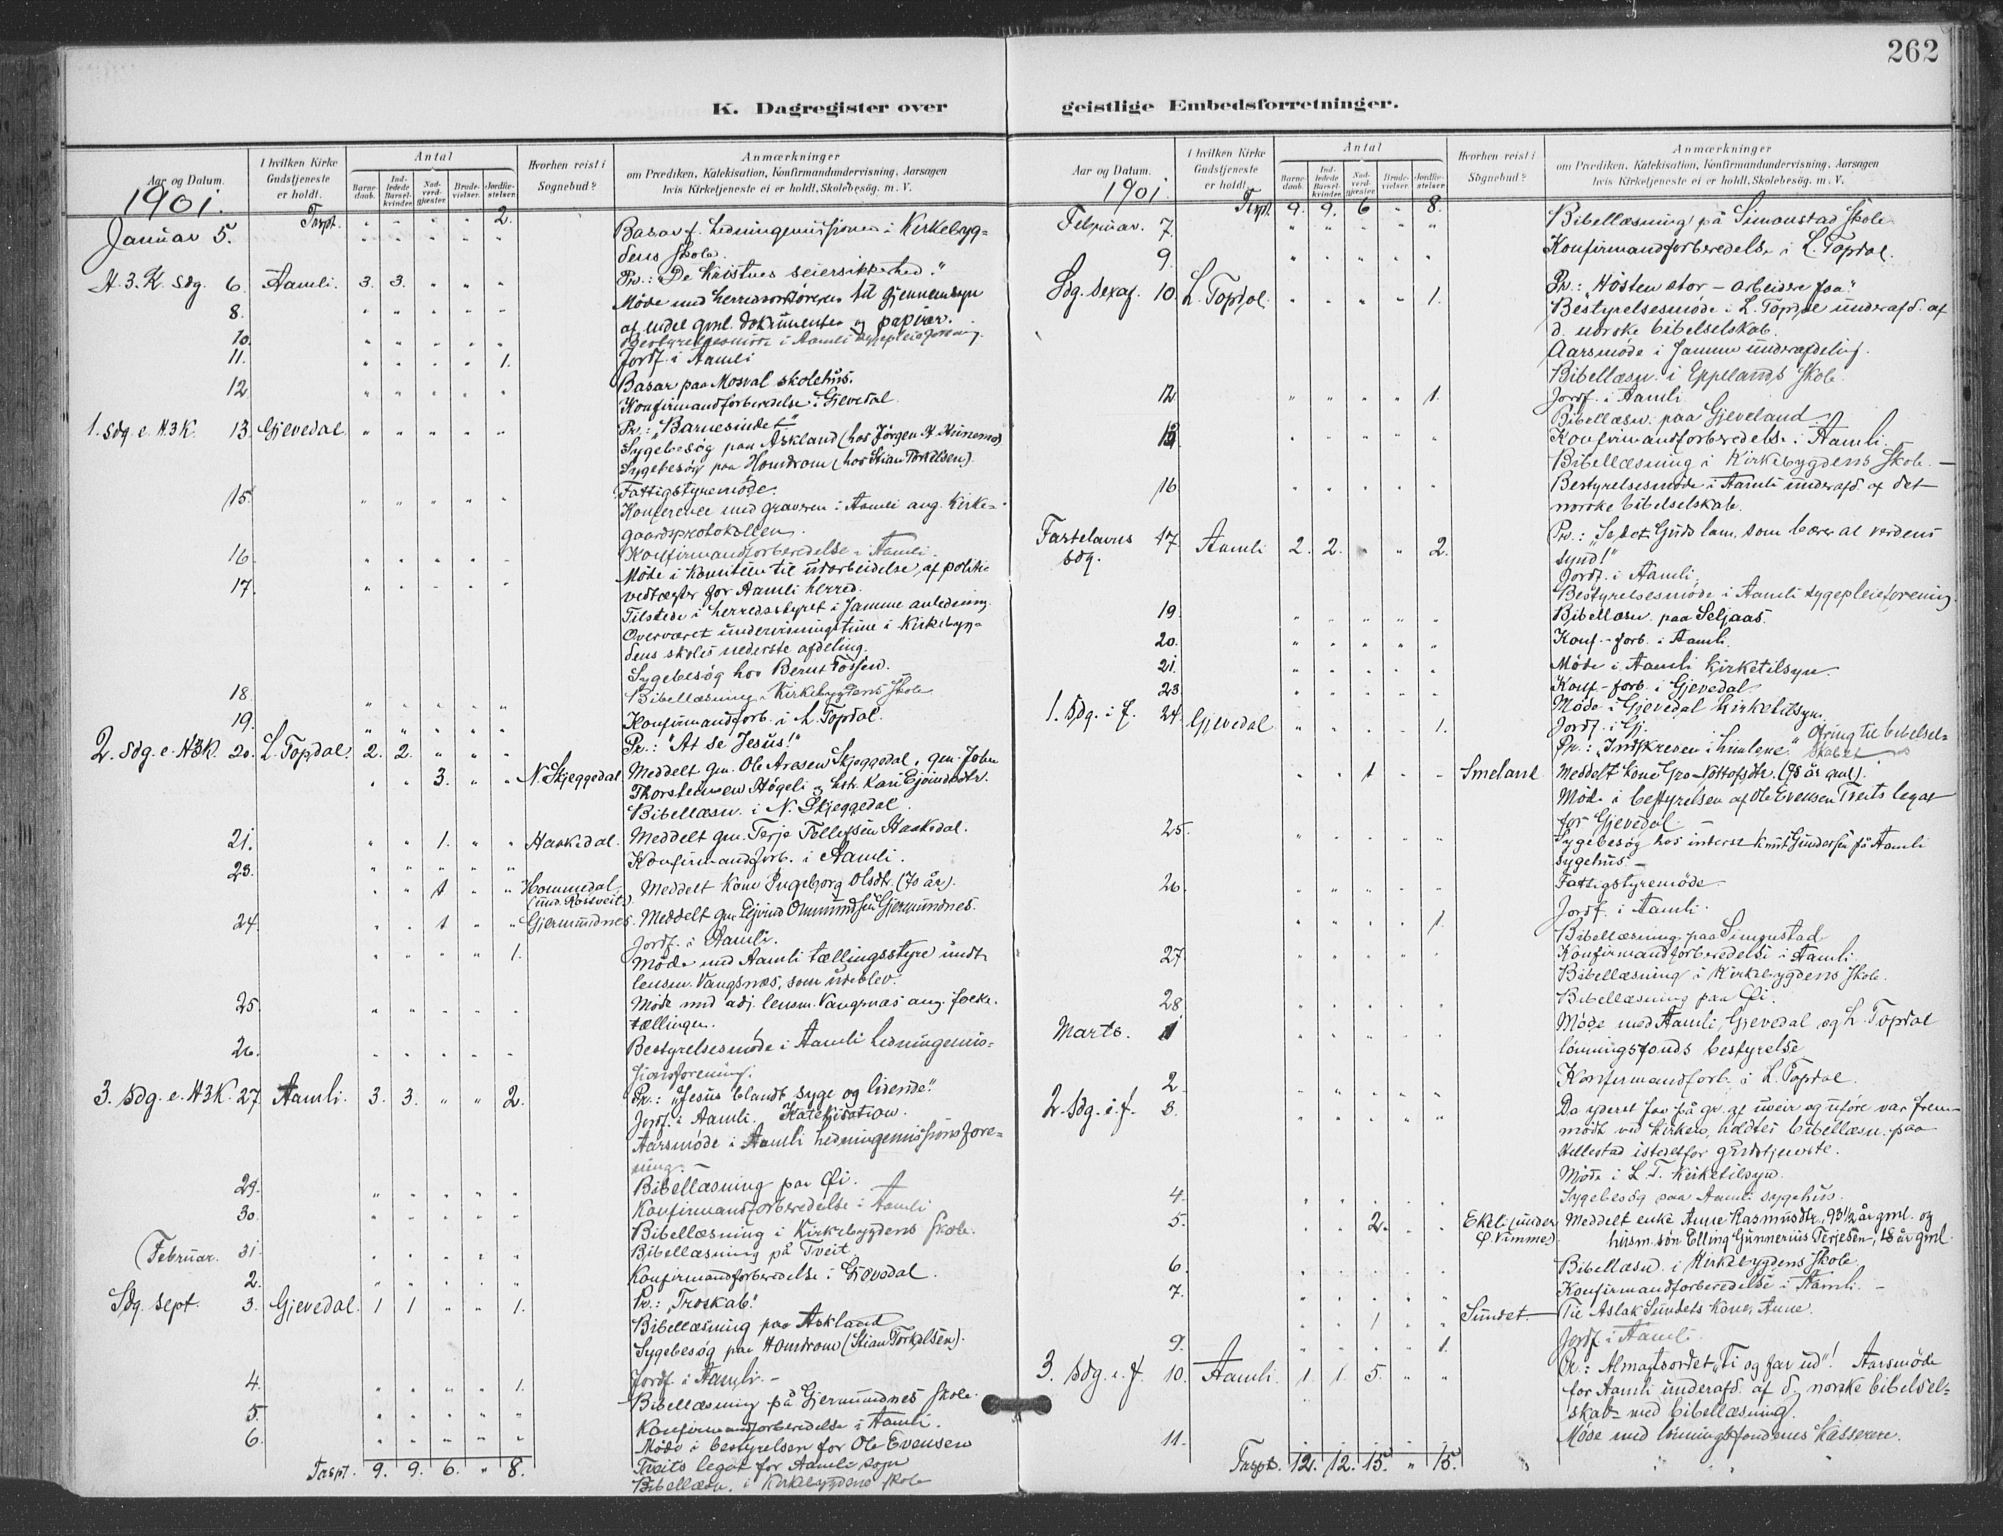 262
K. Dagregister over
Aar og Datum.
I hvilken Kirke Gudstjeneste er holdt.
Antal
Barne-daab.
Ind-ledede Barsel-kvinder.
Nad-verd-gjester.
Brude-vielser.
Jordfæ-stelser.
Hvorhen reist i Sognebud?
Anmærkninger
om Prædiken, Katekisation, Konfirmandundervisning, Aarsagen
hvis Kirketjeneste ei er holdt, Skolebesøg. m. V.
1901.
Trspt. " " " " 2.
Januar 5. " " " " " Basar f. Hedningemissionen i Kirkebyg-
dens Skole.
H. 3. K. Sdg. 6. Aamli. 3. 3. " " " Pr.: "De kristnes seiersikkerhed."
8. " " " " " Møde med herredsordføreren til gjennemsyn
af endel gml. dokumenter og papirer.
10. " " " " " Bestyrelsesmøde i Aamli sygepleieforening.
11. " " " " 1. Jordf. i Aamli
Basar paa Mosval skolehus.
12 " " " " " Konfirmandforberedelse i Gjevedal.
1. Sdg. e. H3K. 13. Gjevedal " " " " " Pr.: "Barnesindet"
Sygebesøg paa Askland (hos Jørgen H.
Sygebesøg paa Homdrom (hos Stian Torkelsen).
15. " " " " " Fattigstyremøde.
Konference med graveren i Aamli ang. Kirke-
gaardsprotokollen.
16. " " " " " Konfirmandforberedelse i Aamli.
17. " " " " " Møde i komiteen til udarbeidelse af politi-
vedtægter for Aamli herred.
Tilstede i herredsstyret i samme anledning.
Overværet undervisningstime i Kirkebyg-
dens skoles nederste afdeling.
Sygebesøg hos Bernt Fossen.
18. " " " " " Bibellæsning i Kirkebygdens Skole
19. " " " " " Konfirmandforb. i L. Topdal.
2. Sdg. e. H3K. 20. L. Topdal. 2. 2. " " " Pr.: "At se Jesus!"
" " 3. " " N. Skjeggedal Meddelt gm. Ole Aresen Skjeggedal, gm. John
Thorstensen Høgeli og hstr. Kari Ejvindsdtr.
Bibellæsn. i N. Skjeggedal.
21. " " 1. " " Haakedal. Meddelt gm. Terje Tellefsen Haakedal.
23. " " " " " Konfirmandforb. i Aamli.
" " 1 " " Hommedal, (und. Rossveit.) Meddelt Kone Ingeborg Olsdtr. (70 år).
24. " " 1 " " Gjermundnes. Meddelt gm. Ejvind Ommundsen Gjermundnes.
" " " " 1. Jordf. i Aamli.
Møde med Aamli tællingsstyre undt.
lensm. Vangsnæs, som udeblev.
25. " " " " " Møde med adj. lensm. Vangsnæs ang. folke-
tællingen.
26. " " " " " Bestyrelsesmøde i Aamli Hedningemis-
sionsforening.
3. Sdg. e. H3K. 27. Aamli. 3. 3. " " 2. Pr.: "Jesus blandt syge og lidende."
Jordf. i Aamli. Katekisation.
Aarsmøde i Aamli hedningemissionsfore-
ning. —
29. " " " " " Bibellæsning paa Øi.
30. " " " " " Konfirmandforberedelse i Aamli
Bibellæsning i Kirkebygdens Skole.
31. " " " " " Bibellæsning på Tveit.
Februar. 2. " " " " " Konfirmandforberedelse i Gjevedal.
Sdg. sept. 3. Gjevedal. 1 1 " " 1. Pr.: "Troskab!"
Bibellæsning paa Askland
Sygebesøg paa Homdrom (Stian Torkelsen).
4. " " " " 1. Jordf. i Aamli. —
Bibellæsning på Gjermundnes Skole.
5. " " " " " Konfirmandforberedelse i Aamli.
6. " " " " " Møde i bestyrelsen for Ole Evensen
Treits legat for Aamli sogn
Trspt. 9. 9. 6. " 8. Bibellæsn. i Kirkebygdens skole
geistlige Embedsforretninger.
Aar og Datum.
I hvilken Kirke Gudstjeneste er holdt.
Antal
Barne-daab.
Ind-ledede Barsel-kvinder.
Nad-verd-gjester.
Brude-vielser.
Jordfæ-stelser.
Hvorhen reist i Sognebud?
Anmærkninger
om Prædiken, Katekisation, Konfirmandundervisning, Aarsagen
hvis Kirketjeneste ei er holdt, Skolebesøg. m. V.
1901.
Trspt. 9. 9. 6 " 8.
Februar. 7. " " " " " Bibellæsning på Simonstad Skole
9. " " " " " Konfirmandforberedelse i L. Topdal.
Sdg. sexag. 10. L. Topdal. " " " " 1. Pr.: "Høsten stor — arbeidere faa."
Bestyrelsesmøde i L. Topdal underafd. af
d. norske bibelselskab.
Aarsmøde i samme underafdeling.
Bibellæsn. i Epplands Skole.
12. " " " " 1. Jordf. i Aamli
Bibellæsn. paa Gjeveland
13. " " " " " Konfirmandforberedelse i Aamli.
Bibellæsning i Kirkebygdens Skole. —
16. " " " " " Bestyrelsesmøde i Aamli underafd. af det
norske bibelselskab.
Fastelavns sdg. 17. Aamli 2. 2. " " 2. Pr.: "Se det Guds lam, som bærer al verdens
synd!"
Jordf. i Aamli.
Bestyrelsesmøde i Aamli sygepleieforening.
19. " " " " " Bibellæsn. paa Seljaas.
20. " " " " " Konf.-forb. i Aamli.
21. " " " " " Møde i Aamli kirketilsyn.
23. " " " " " Konf-forb. i Gjevedal.
1. Sdg. i f. 24. Gjevedal " " " " 1. Møde i Gjevedal Kirketilsyn.
Jordf. i Gj. Ofring til bibelsel-
Pr.: "Indskreven i himlene." skabet
" " 1 " " Smeland Meddelt kone Gro Nottofsdtr. (78 år gml.).
Møde i bestyrelsen af Ole Evensen Treits legat
for Gjevedal —
25. " " " " " Sygebesøg hos inderst Knut Gundersen på Aamli
sygehus. —
26. " " " " " Fattigstyremøde.
" " " " 1. Jordf. i Aamli.
Bibellæsning paa Simonstad
27. " " " " " Konfirmandforberedelse i Aamli.
Bibellæsning i Kirkebygdens Skole.
28 " " " " " Bibellæsning paa Øi.
Marts. 1 " " " " " Møde med Aamli, Gjevedal og L. Topdal
lønningsfonds bestyrelse
2 " " " " " Konfirmandforb. i L. Topdal.
2. Sdg. i f. 3. " " " " " Da yderst faa på gr. af uveir og uføre var frem-
mødt ved kirken, holdtes bibellæsn. paa
Hillestad istedetfor gudstjeneste.
Møde i L. T. Kirketilsyn.
4. " " " " " Sygebesøg paa Aamli sygehus.
5. " " 2. " " Ekeli (under Ø. Vimme). Meddelt enke Anne Rasmusdtr., 93½ år gml. og
husm. søn Elling Gunnerius Terjesen, 18 år gml.
6. " " " " " Bibellæsn. i Kirkebygdens Skole.
7. " " " " " Konfirmandforberedelse i Aamli. —
" " 1 " " Sundet — Til Aslak Sundets kone, Anne.
9. " " " " 1. Jordf. i Aamli.
3. Sdg. i f. 10. Aamli. 1 1. 5. " " Pr.: Almagtsordet "Ti og far ud"! Aarsmøde
for Aamli underafd. af d. norske bibelsel-
skab — med bibellæsning.
11. " " " " " Møde med lønningsfondenes Kasserere.
Trspt. 12. 12. 15. " 15.